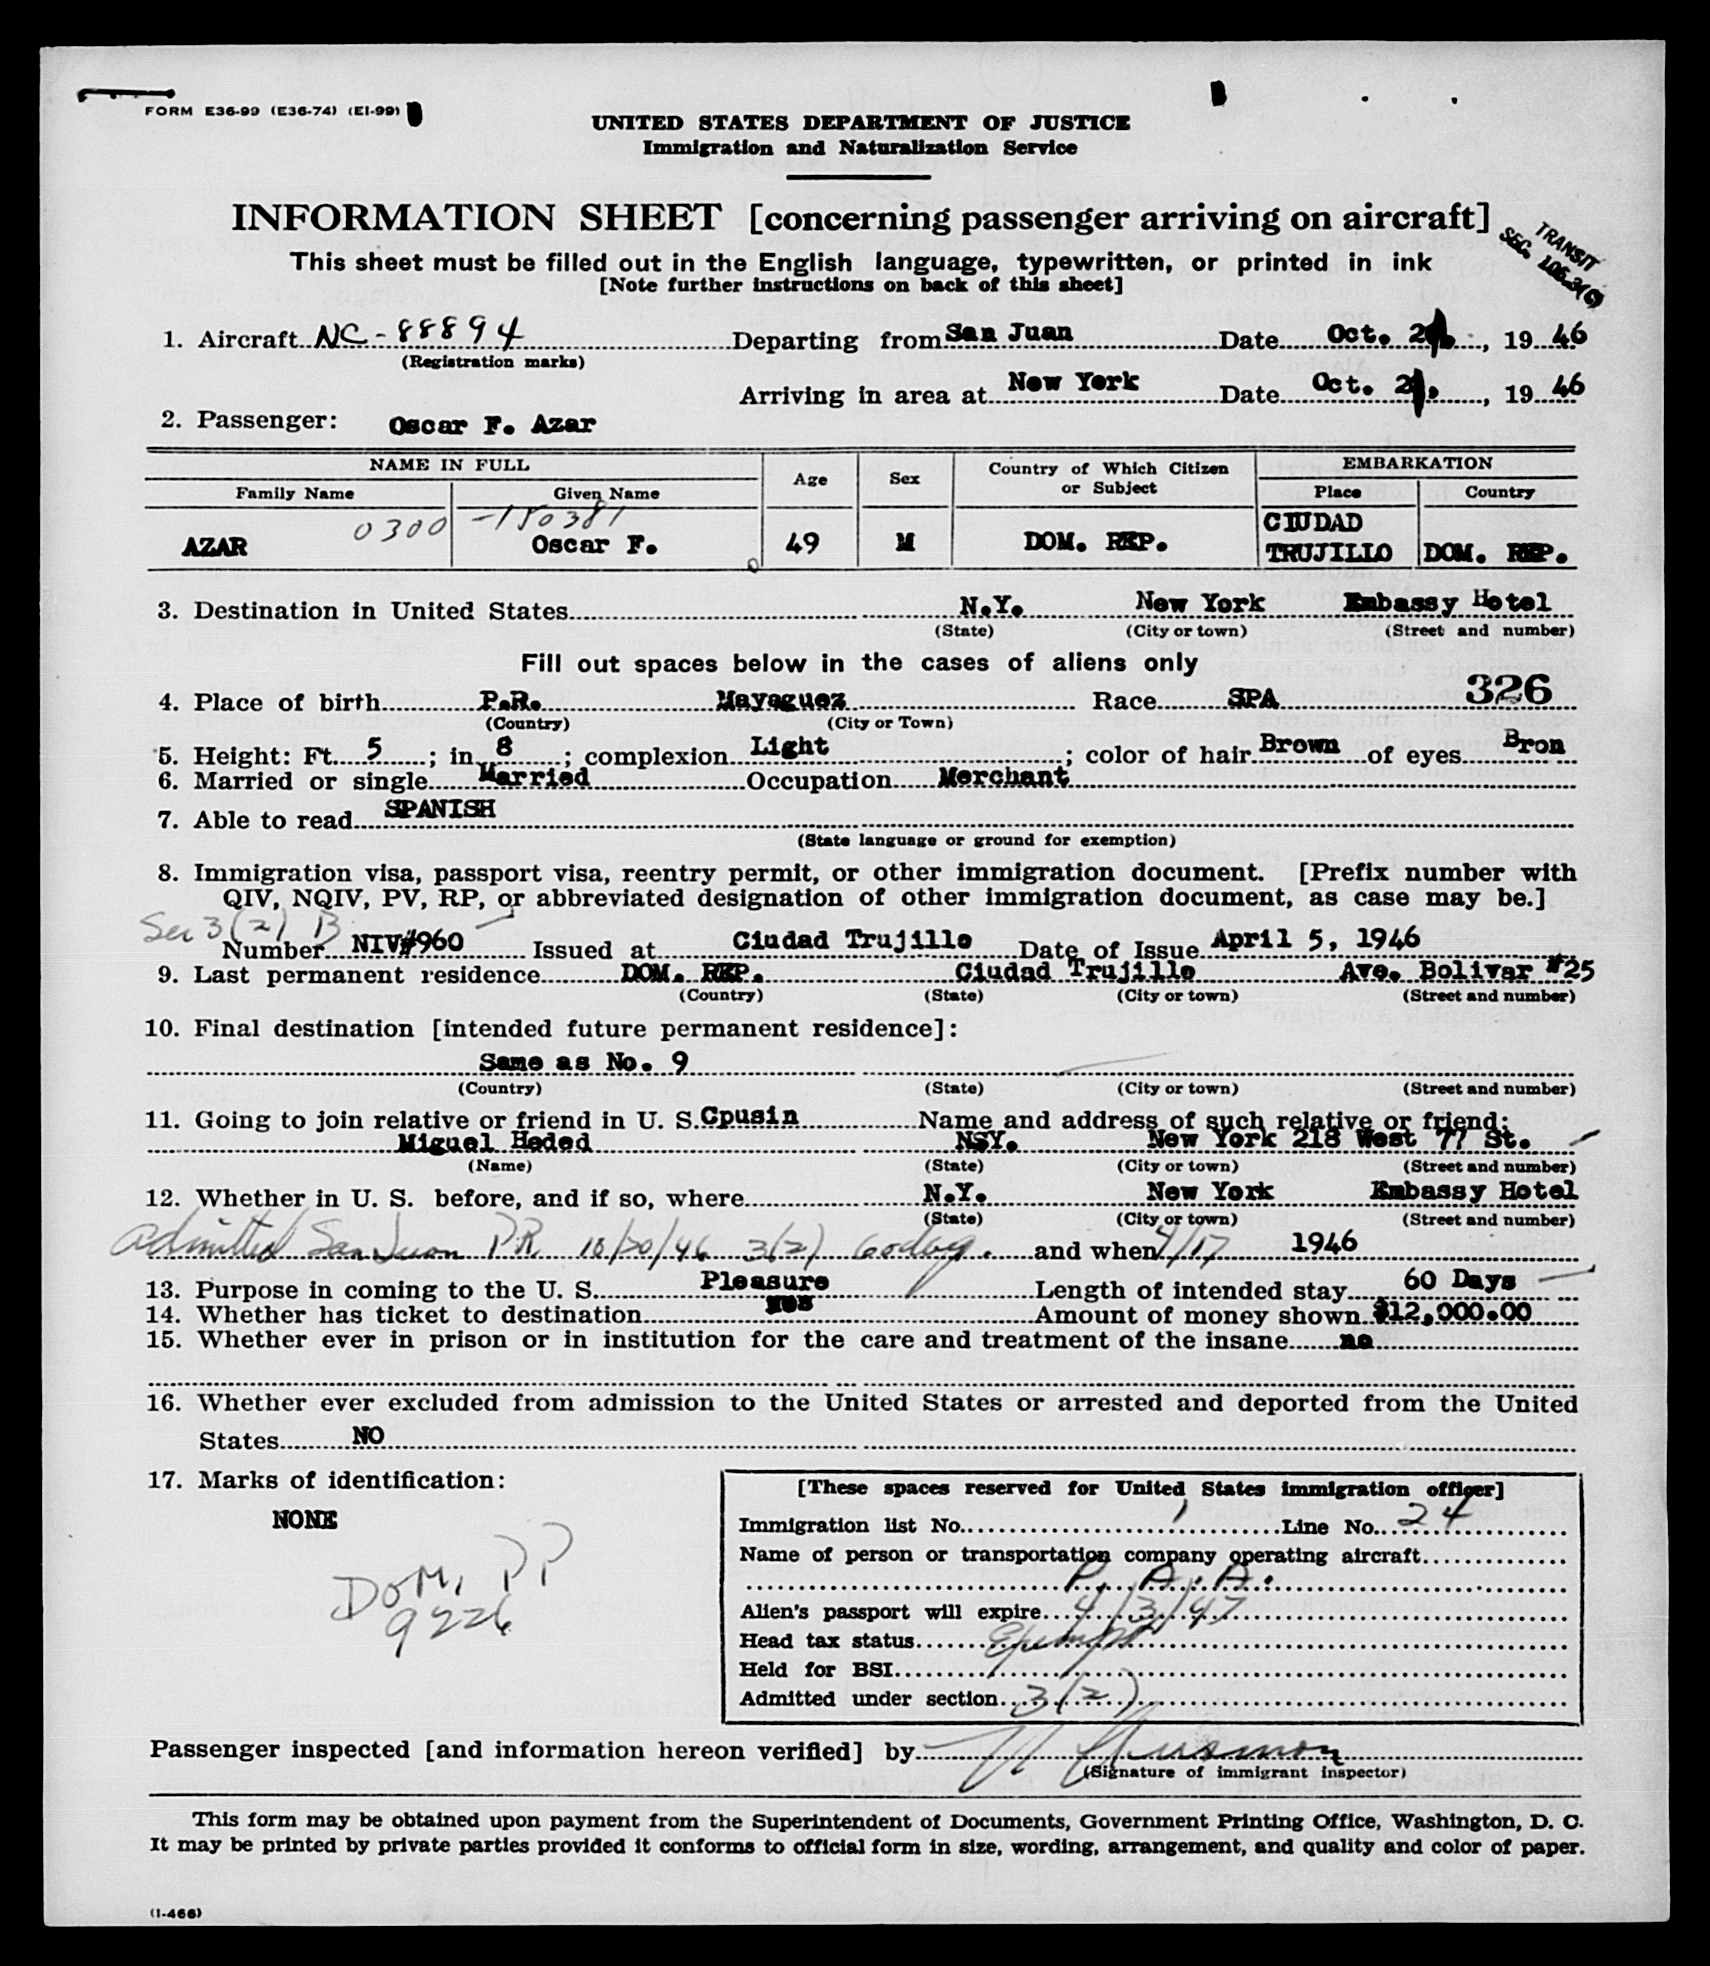 FORM E36-99 (E36-74) (EI-99)
UNITED STATES DEPARTMENT OF JUSTICE
Immigration and Naturalization Service
INFORMATION SHEET [concerning passenger arriving on aircraft]
TRANSIT
SEC. 106.3(c)
This sheet must be filled out in the English language, typewritten, or printed in ink
[Note further instructions on back of this sheet]
1. Aircraft NC-88894 Departing from San Juan Date Oct. , 19 46
(Registration marks)
Arriving in area at New York Date Oct. , 19 46
2. Passenger: Oscar F. Azar
NAME IN FULL Age Sex Country of Which Citizen or Subject EMBARKATION
Family Name Given Name Place Country
0300 -150381
AZAR Oscar F. 49 M DOM. REP. CIUDAD TRUJILLO DOM. REP.
3. Destination in United States N.Y. New York Embassy Hotel
(State) (City or town) (Street and number)
Fill out spaces below in the cases of aliens only
4. Place of birth P.R. Mayaguez Race SPA 326
(Country) (City or Town)
5. Height: Ft. 5; in 8; complexion Light; color of hair Brown of eyes Bron
6. Married or single Married Occupation Merchant
7. Able to read SPANISH
(State language or ground for exemption)
8. Immigration visa, passport visa, reentry permit, or other immigration document. [Prefix number with
QIV, NQIV, PV, RP, or abbreviated designation of other immigration document, as case may be.]
Sec 3(2) B
Number NIV#960 Issued at Ciudad Trujillo Date of Issue April 5, 1946
9. Last permanent residence DOM. REP. Ciudad Trujillo Ave. Bolivar #25
(Country) (State) (City or town) (Street and number)
10. Final destination [intended future permanent residence]:
Same as No. 9
(Country) (State) (City or town) (Street and number)
11. Going to join relative or friend in U. S. Cpusin Name and address of such relative or friend:
Miguel Heded NSY. New York 218 West 77 St.
(Name) (State) (City or town) (Street and number)
12. Whether in U. S. before, and if so, where N.Y. New York Embassy Hotel
(State) (City or town) (Street and number)
Admitted San Juan P.R. 10/20/46 3(2) 60 days. and when 4/17 1946
13. Purpose in coming to the U. S. Pleasure Length of intended stay 60 Days
14. Whether has ticket to destination Amount of money shown $12,000.00
15. Whether ever in prison or in institution for the care and treatment of the insane no
16. Whether ever excluded from admission to the United States or arrested and deported from the United
States NO
17. Marks of identification:
NONE
DOM. PP
9226
[These spaces reserved for United States immigration officer]
Immigration list No. 1 Line No. 24
Name of person or transportation company operating aircraft
P. A. A.
Alien's passport will expire 4/3/47
Head tax status Exempt
Held for BSI
Admitted under section 3(2)
Passenger inspected [and information hereon verified] by
(Signature of immigrant inspector)
This form may be obtained upon payment from the Superintendent of Documents, Government Printing Office, Washington, D. C.
It may be printed by private parties provided it conforms to official form in size, wording, arrangement, and quality and color of paper.
(I-466)